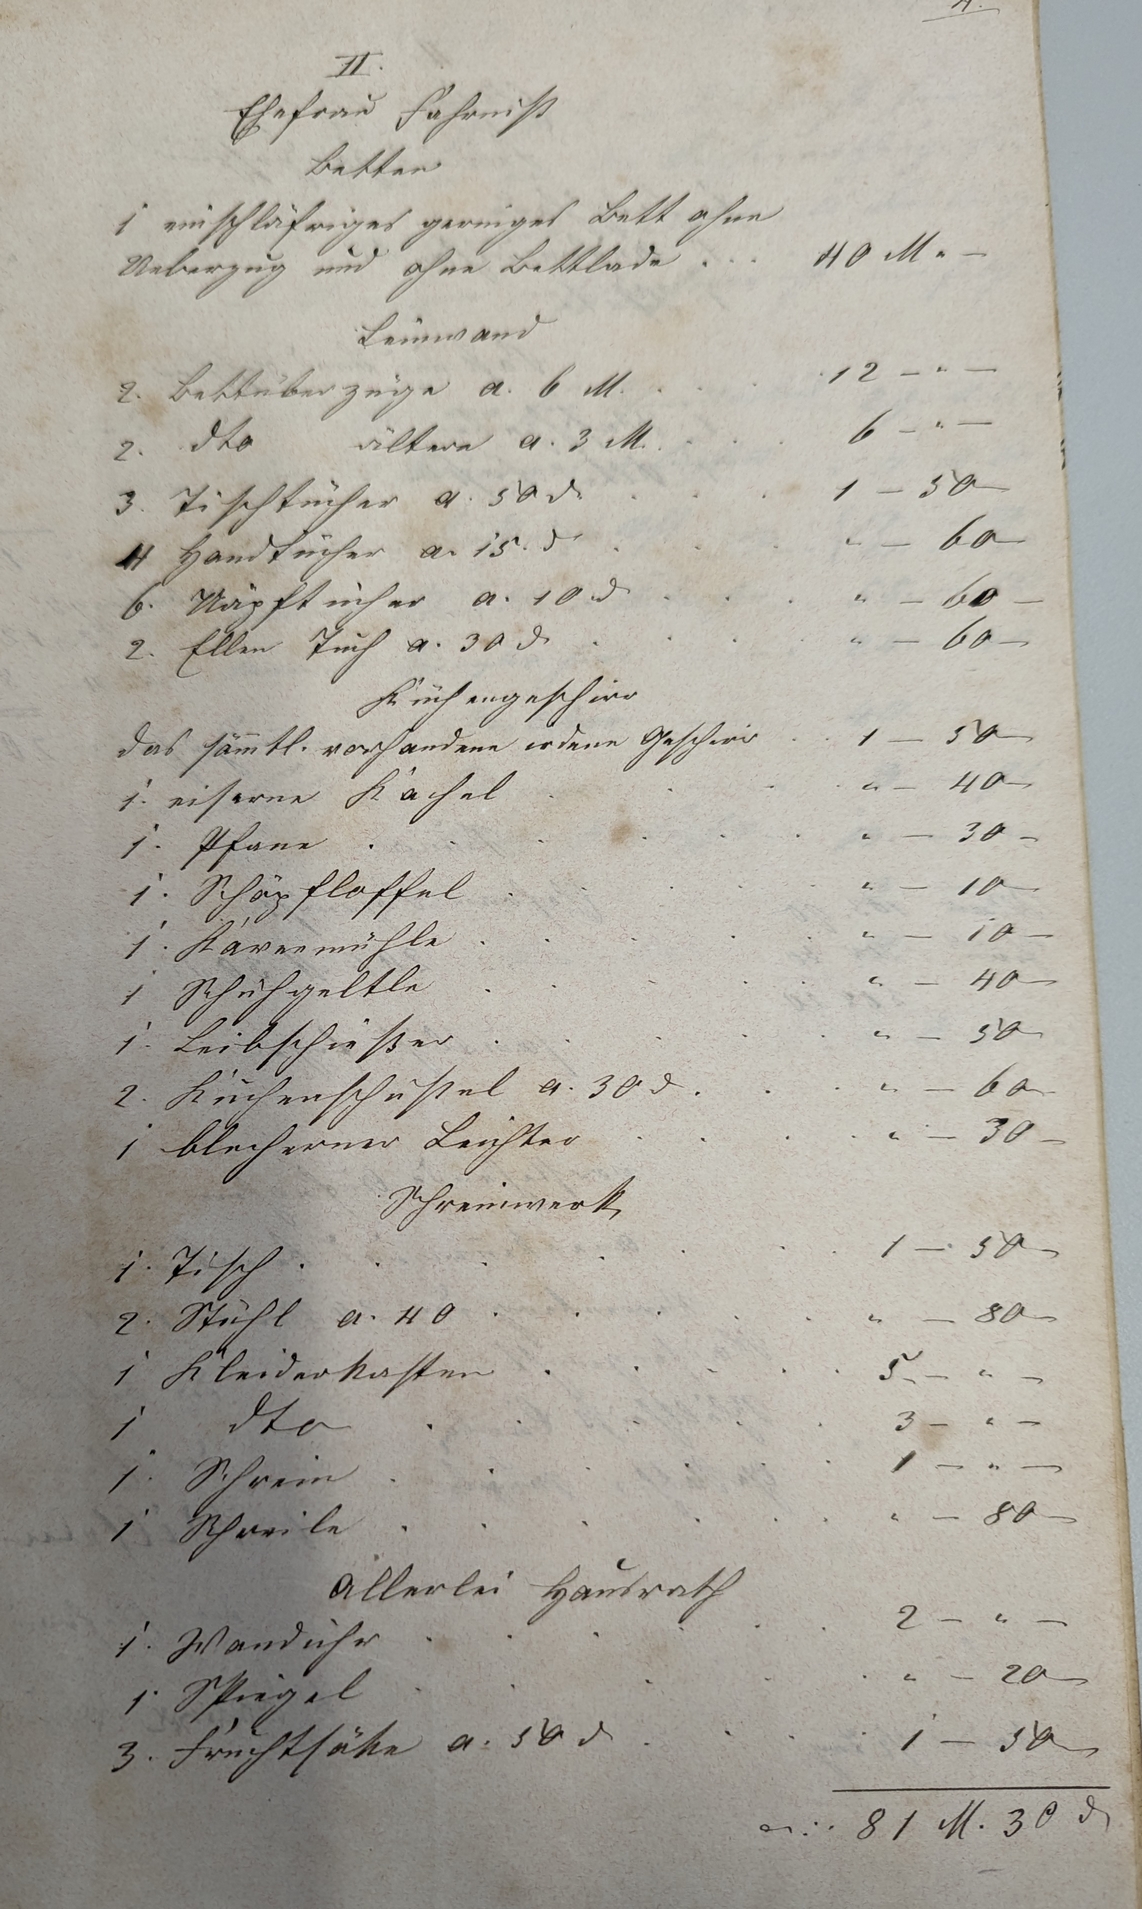 4.
II.
Ehefrau Fahrniß
Betten
1 einschläfriges geringes Bett ohne
Ueberzug und ohne Bettlade . . . 40 M „ —
Leinwand
2. Bettüberzüge a. 6 M. . . . 12 — „ —
2. dto ältere a. 3 M. . . . 6 — „ —
3. Tischtücher a. 50 d. . . . 1 — 50 —
4 Handtücher a. 15. d . . . „ — 60 —
6. Näpftücher a. 10 d . . . „ — 60 —
2. Ellen Tuch a. 30 d . . . „ — 60 —
Küchengeschirr
das sämmtl. vorhandene irdene Geschirr . . 1 — 50 —
1. eiserne Kachel . . . „ — 40 —
1. Pfane . . . . „ — 30 —
1. Schöpfloffel . . . . „ — 10 —
1. Käveemühle . . . . „ — 10 —
1 Schuhgeltle . . . . „ — 40 —
1. Leibschießer . . . . „ — 50
2. Küchenschüßel a. 30 d . . . „ — 60 —
1 blecherner Leichter . . . . „ — 30 —
Schreinwerk
1. Tisch . . . . 1 — 50 —
2. Stühl a. 40 . . . . „ — 80 —
1 Kleiderkasten . . . . 5. — „ —
1 dto . . . . 3 — „ —
1. Schrein . . . . 1 — „ —
1 Schreile . . . . „ — 80 —
Allerlei Hausrath
1. Wanduhr . . . . 2 — „ —
1. Spiegel . . . . „ — 20 —
3. Fruchtsäke a. 50 d . . . 1 — 50 —
81 M. 30 d